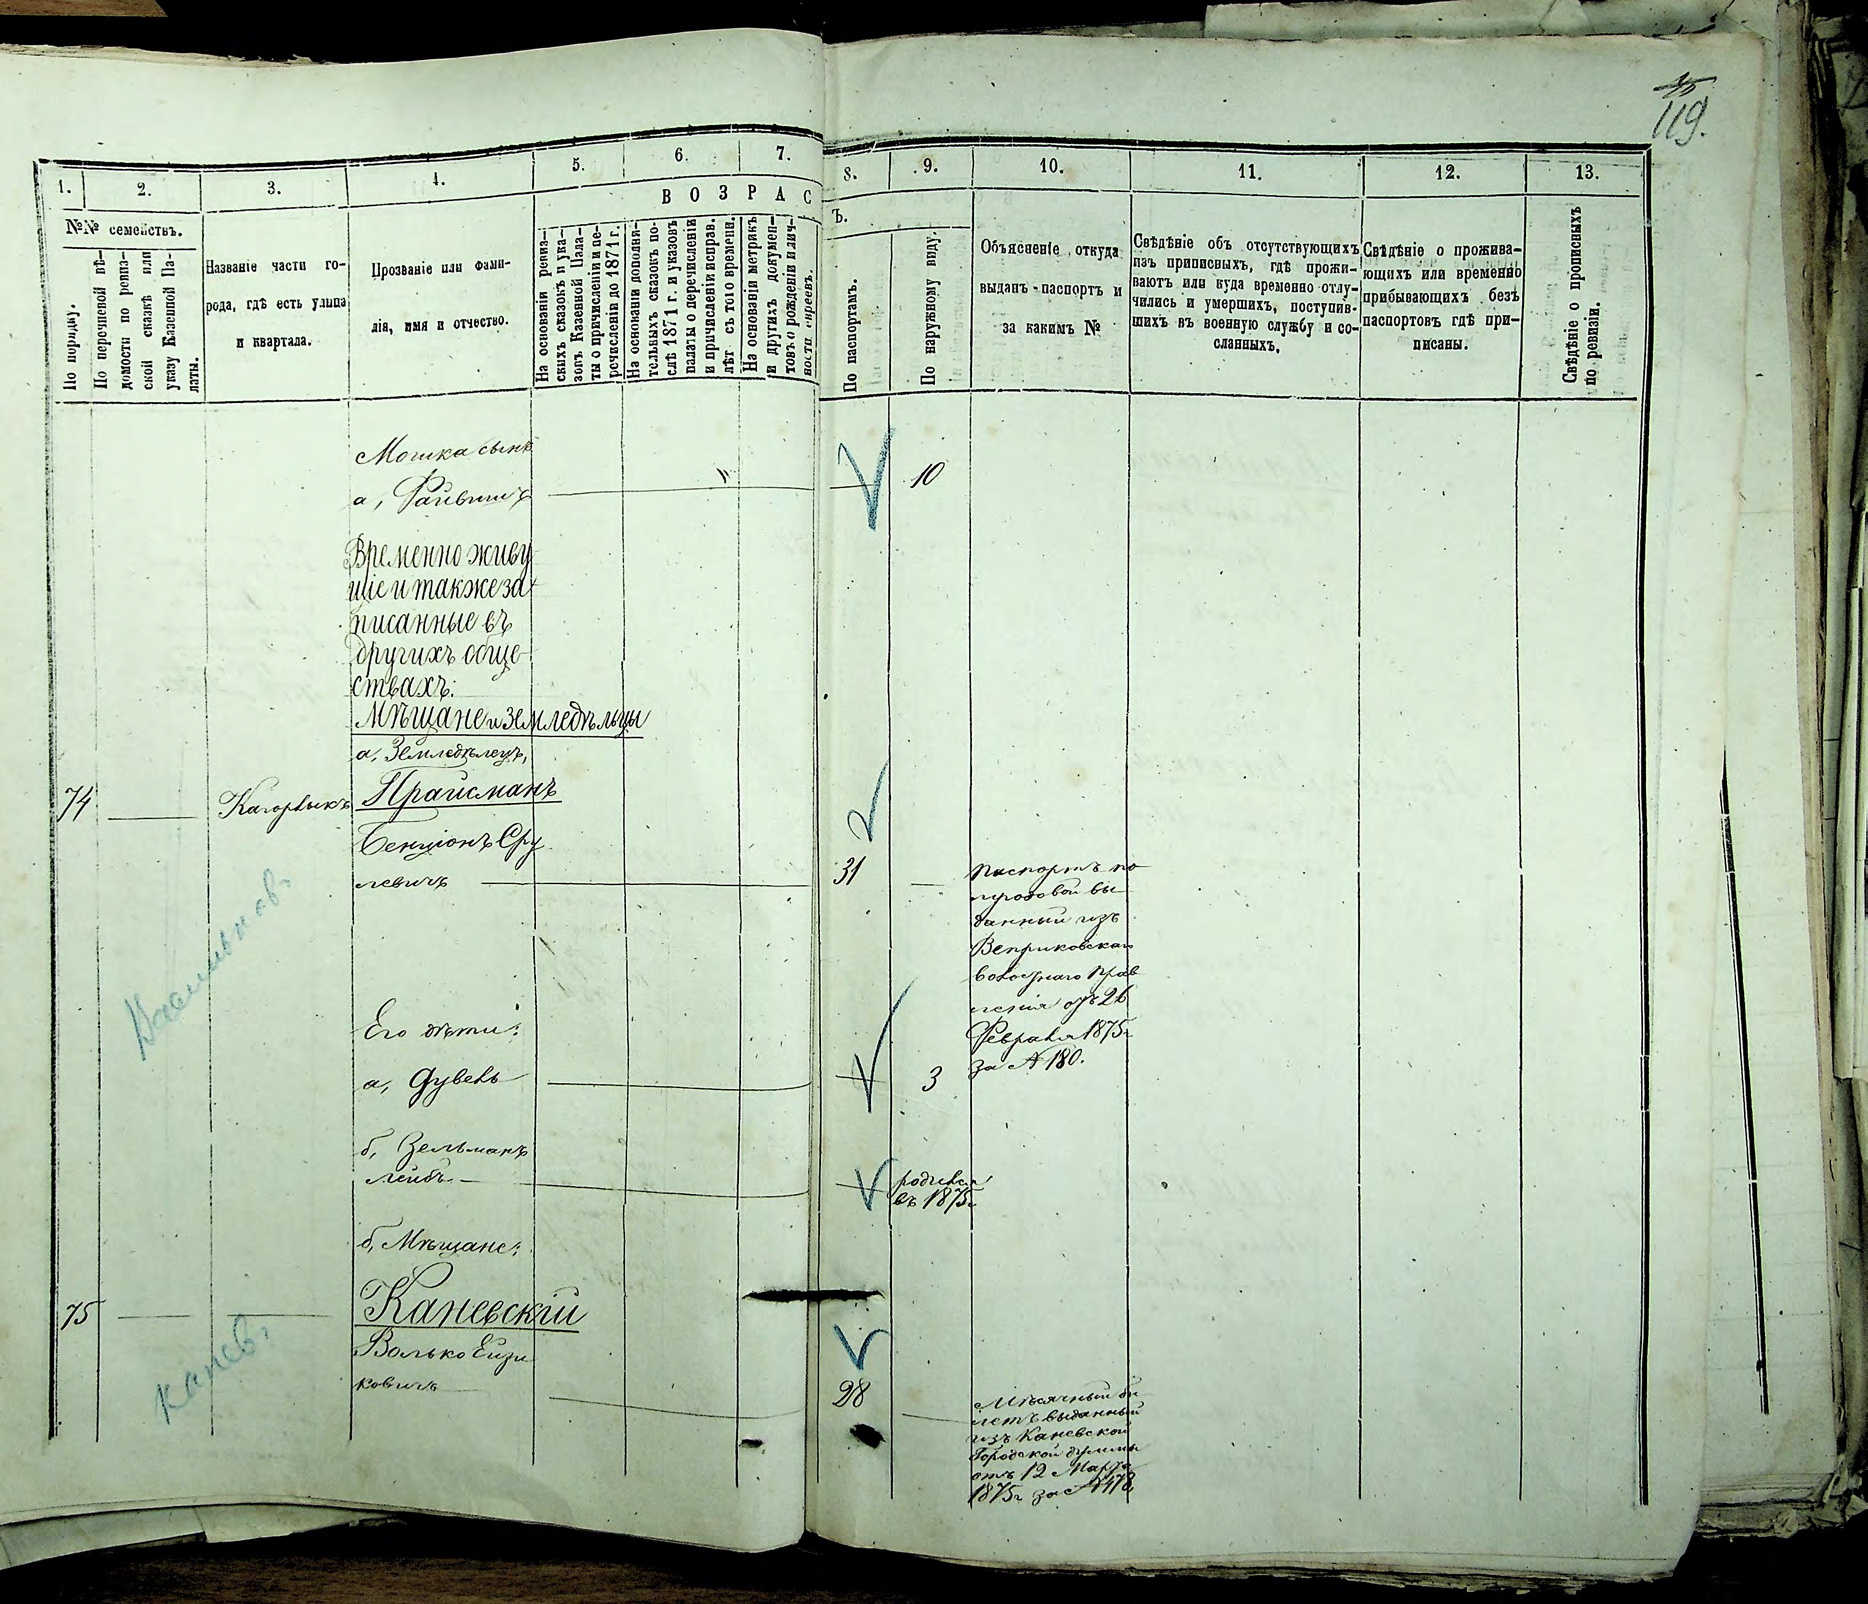 119.
1.
2.
3.
4.
5.
6.
7.
8.
9.
10.
11.
12.
13.
№№ семействъ.
По порядку.
По перечневой вѣ-
домости по ревиз-
ской сказкѣ или
указу Казенной Па-
латы.
Названіе части го-
рода, гдѣ есть улица
и квартала.
Прозваніе или фами-
лія, имя и отчество.
ВОЗРАС
Ъ.
На основаніи ревиз-
скихъ сказокъ и ука-
зовъ Казенной Пала-
ты о причисленіи и пе-
речисленіи до 1871 г.
На основаніи дополни-
тельныхъ сказокъ по-
слѣ 1871 г. и указовъ
палаты о перечисленіи
и причисленіи исправ.
лѣт съ того времени.
На основаніи метрикъ
и другихъ докумен-
товъ о рожденіи и лич-
ности евреевъ.
По паспортамъ.
По наружному виду.
Объясненіе откуда
выданъ паспортъ и
за какимъ №
Свѣдѣніе объ отсутствующихъ
изъ приписныхъ, гдѣ прожи-
ваютъ или куда временно отлу-
чились и умершихъ, поступив-
шихъ въ военную службу и со-
сланныхъ.
Свѣдѣніе о прожива-
ющихъ или временно
прибывающихъ безъ
паспортовъ гдѣ при-
писаны.
Свѣдѣніе о прописныхъ
по ревизіи.
Мошка сынъ
а, 10
Временно живу
щіе и также за
писанные въ
другихъ обще-
ствахъ:
Мѣщане и земледѣльцы
а, Земледѣлецъ,
74 Кагорлыкъ Прайсманъ
Бенціонъ Сру
левичъ 31
паспортъ по
лугодовой вы
данный изъ
Веприковскаго
волостнаго прав
ленія отъ 26
Февраля 1875 г
за № 180.
Его дѣти:
а, Дувель 3
б, Зельманъ
Лейбъ
родился
въ 1875 г
б, Мѣщане:
75 Каневскій
Волько Ейзи
ковичъ 28
Мѣсячный би
летъ выданный
изъ Каневской
Городской думы
отъ 12 Марта
1875 г за № 478
Васильков.
Канев.